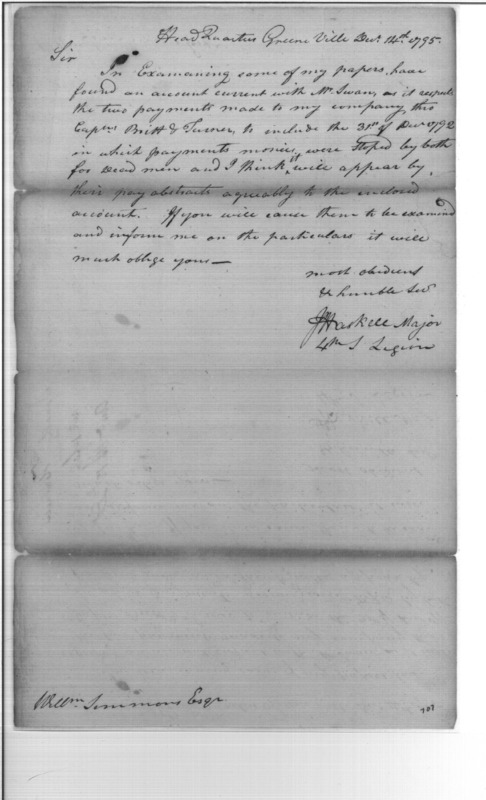 Head Quarters Greene Ville Decr. 14th. 1795.
Sir
In Examaining some of my papers, have
found an account current with Mr. Swan, as it respects
the two payments made to my company, thro
Captns Britt & Turner, to include the 31st of Decr 1792
in which payments monies were stoped by both
for Dead men and I think it will appear by
their pay abstracts agreeably to the enclosed
account. If you will cause them to be examined
and inform me on the particulars it will
much oblige yours—
most obedient
& humble Ser
J Haskell Major
4th S Legion
Willm Simmons Esqr